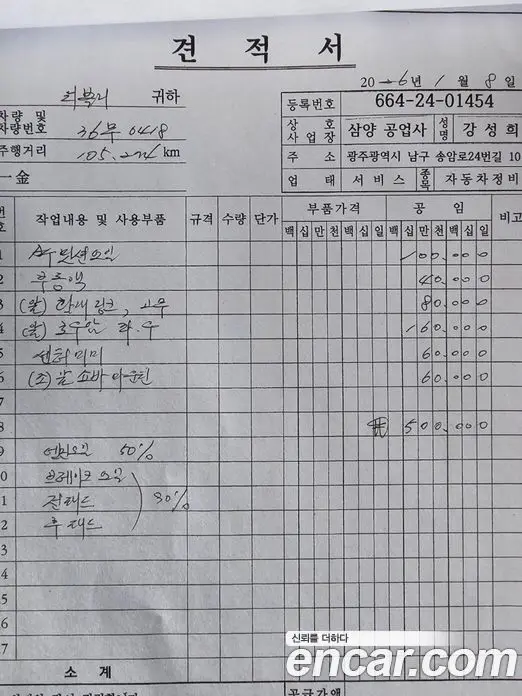 견 적 서
귀하
2026년 1월 8일
차량 및
차량번호
36부 0418
등록번호 664-24-01454
상호
사업장
삼양 공업사
성명
강성희
주행거리 105,274 km
주소 광주광역시 남구 송암로24번길 10
一金
업태 서비스
종목
자동차정비
번호 작업내용 및 사용부품 규격 수량 단가 부품가격 공임 비고
백 십 만 천 백 십 일 백 십 만 천 백 십 일
1 100.000
2 부동액 40.000
3 (앞) 활대 링크, 고무 80.000
4 (앞) 로우암 좌.우 160.000
5 밋션미미 60.000
6 60.000
7
8 ₩ 500.000
9 엔진오일 50%
10 브레이크 오일
11 전패드 30%
12 후패드
13
14
15
16
17
소계
공급가액
신뢰를 더하다
encar.com